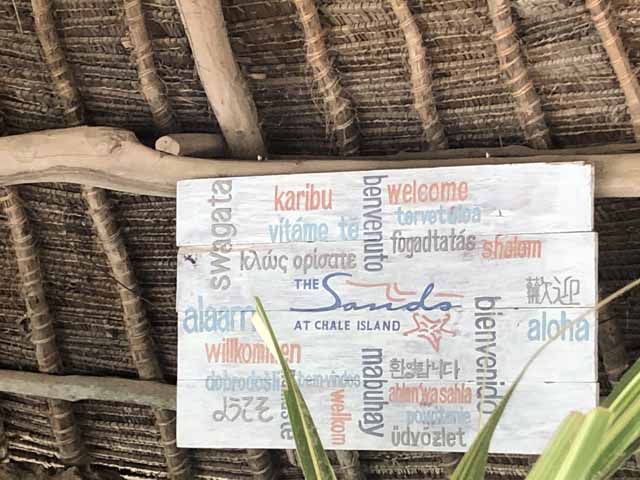 swagata
karibu
benvenuto
welcome
vítáme tě
tervetuloa
fogadtatás
shalom
κλώς ορίσατε
歡迎
THE
Sands
AT CHALE ISLAND
bienvenido
aloha
willkommen
mabuhay
환영합니다
dobrodošli
bem-vindos
ahlen wa sahla
ようこそ
welkom
powitanie
üdvözlet